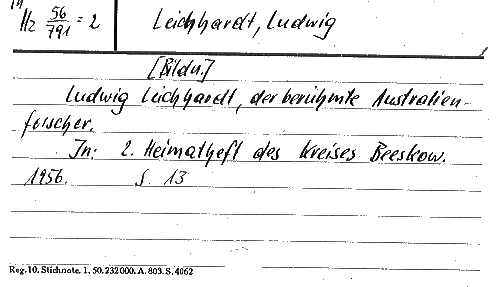 in
Hz 56/791 = 2 Leichhardt, Ludwig
[Bildn.]
Ludwig Leichhardt, der berühmte Australien-
forscher.
In: 2. Heimatheft des Kreises Beeskow.
1956. S. 13
Reg. 10. Stichnote. 1. 50. 232000. A. 803. S. 4062